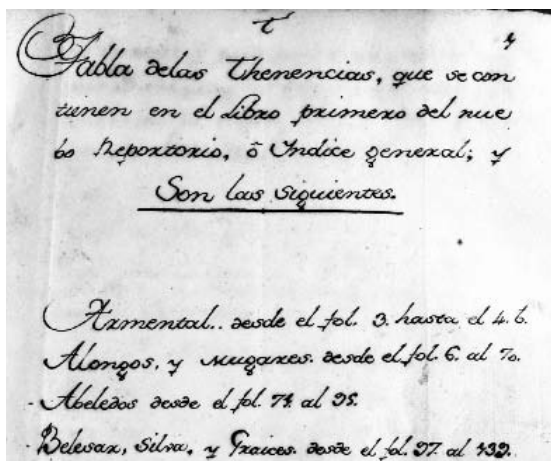 t
Tabla delas Thenencias, que se con
tienen en el Libro primero del nue
bo Reportorio, ô Yndice general; y
Son las siguientes.
Armental.. desde el fol. 3. hasta el 4. b.
Alongos, y Mugares. desde el fol. 6. al 70.
- Abeledos desde el fol. 74. al 95.
- Belesar, Silva, y Fraices. desde el fol. 97. al 139.